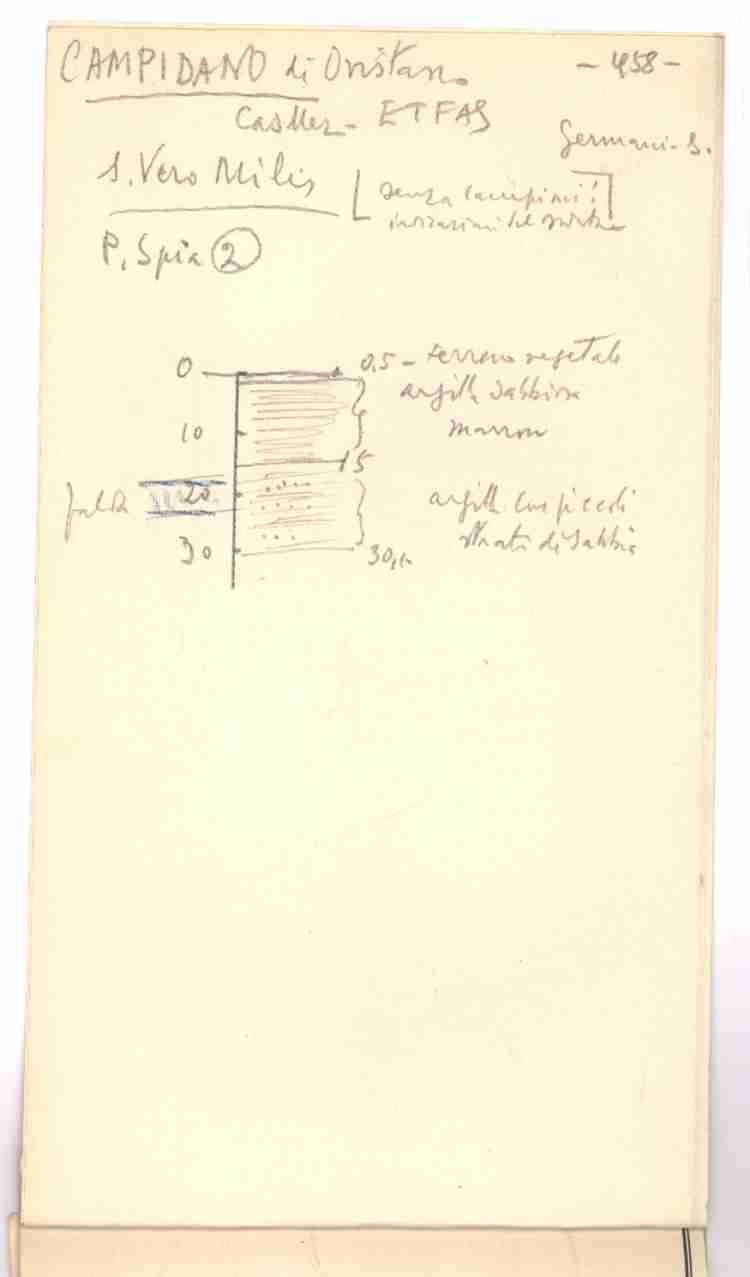 CAMPIDANO di Oristano
- 458 -
Casmez - ETFAS
Germani - S.
S. Vero Milis
senza campioni!
indicazioni del
P. Spia 2
0
0,5 - terreno vegetale
argilla sabbiosa
10
marrone
15
falda
20
argilla con piccoli
strati di sabbia
30
30,